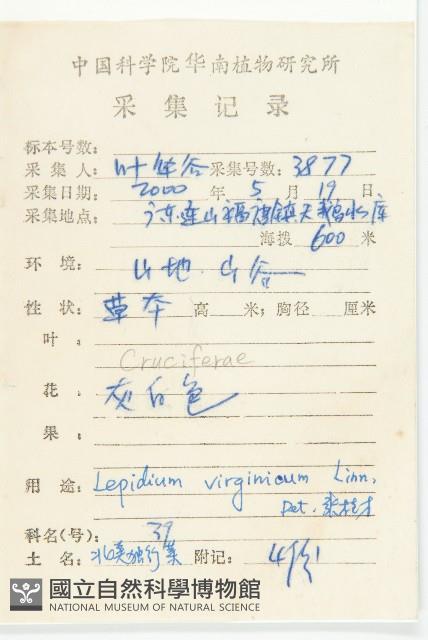 中国科学院华南植物研究所
采集记录
标本号数:
采集人: 叶华谷 采集号数: 3877
采集日期: 2000 年 5 月 19 日
采集地点: 广东连山福堂镇天鹅水库
海拨 600 米
环境: 山地·山谷
性状: 草本 高 米; 胸径 厘米
叶:
Cruciferae
花: 灰白色
果:
用途: Lepidium virginicum Linn.
Det.
科名(号): 39
土名: 北美独行菜 附记:
國立自然科學博物館
NATIONAL MUSEUM OF NATURAL SCIENCE